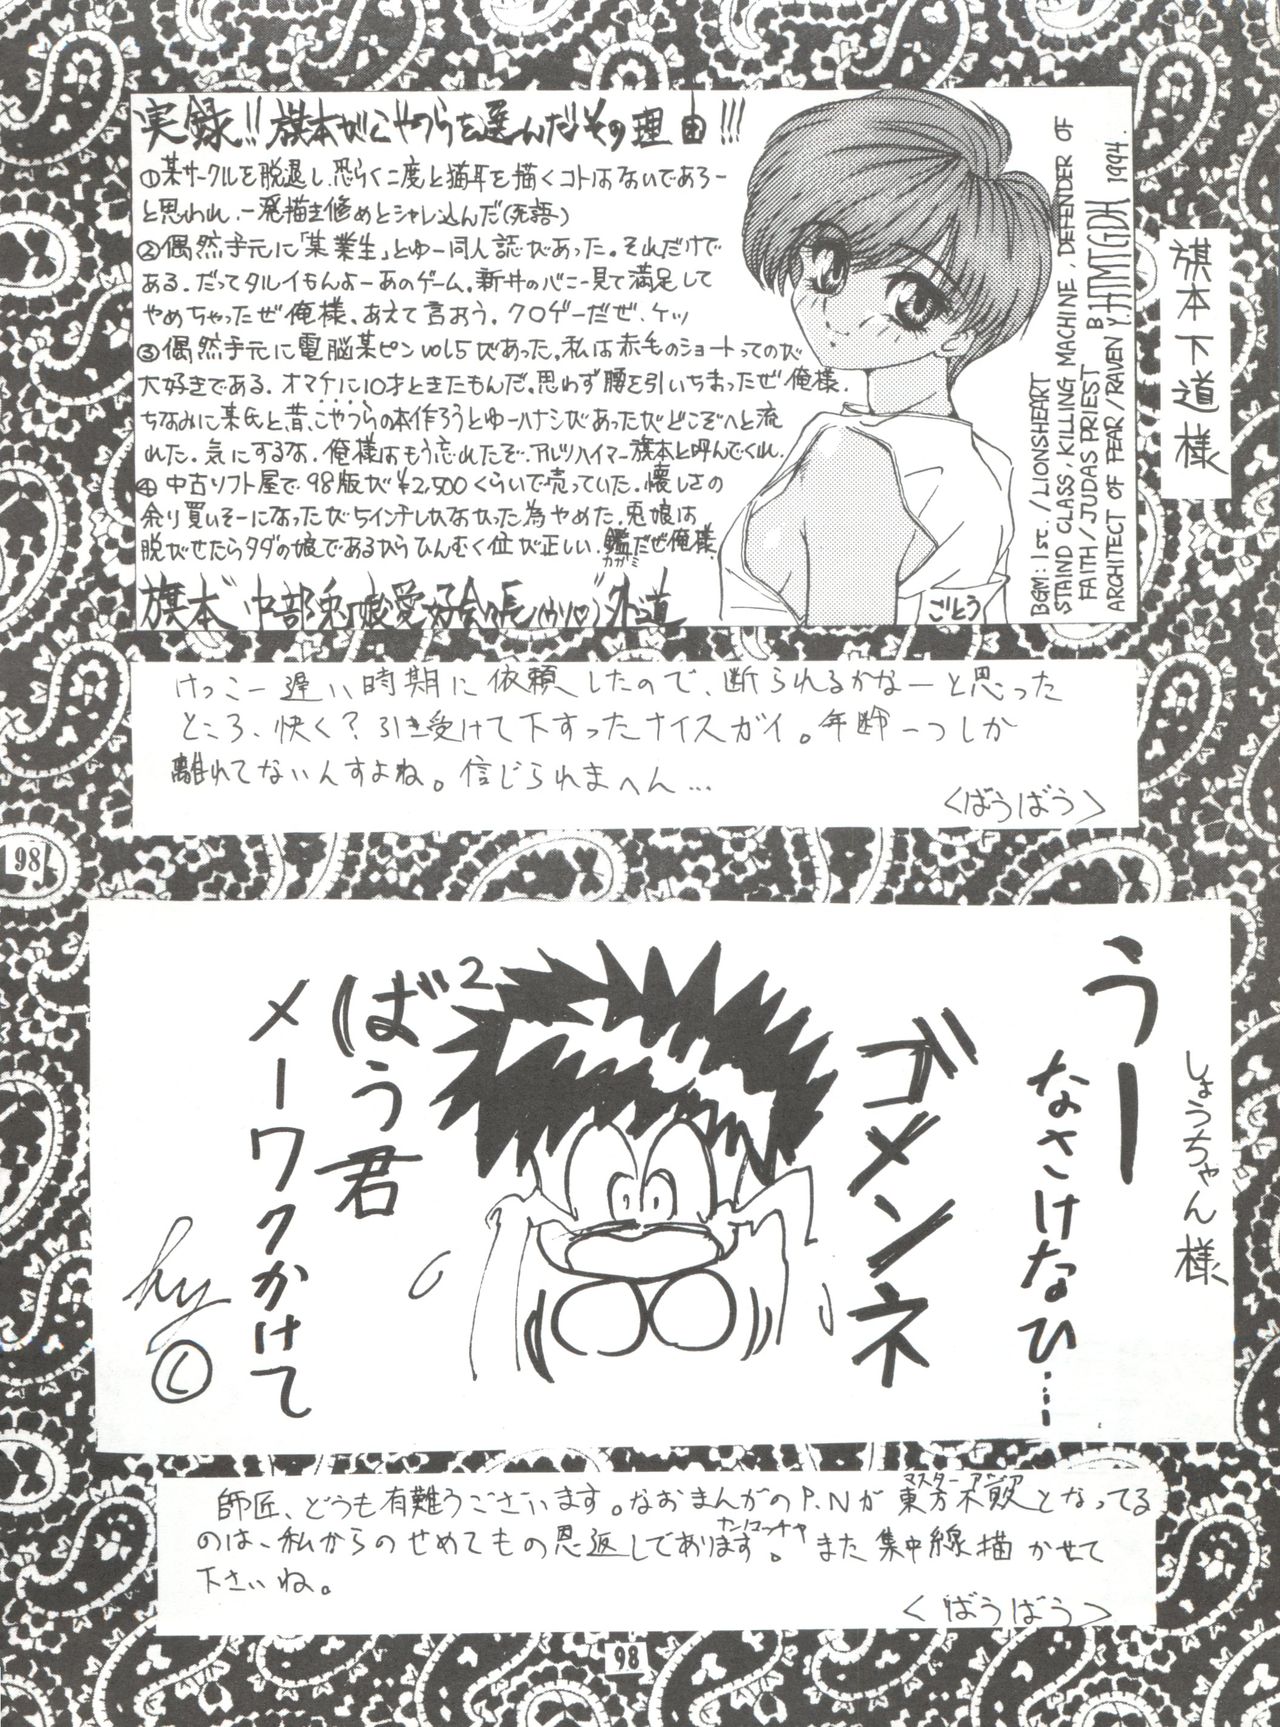 実録!! 旗本がこやつらを選んだその理由!!!
①某サークルを脱退し、恐らく二度と猫耳を描くコトはないであろー
と思われ、一発描き修めとシャレ込んだ(死語)
②偶然手元に「某業生」とゆー同人誌があった。それだけで
ある。だってタルイもんよーあのゲーム。新井のバニー見て満足して
やめちゃったぜ俺様。あえて言おう。クロゲーだぜ、ケッ
③偶然手元に電脳某ピンvol5があった。私は赤毛のショートってのが
大好きである。オマケに10才ときたもんだ。思わず腰を引いちまったぜ俺様。
ちなみに某氏と昔、こやつらの本作ろうとゆーハナシがあったがどこぞへと流
れた。気にするな。俺様はもう忘れたぞ。アルツハイマー旗本と呼んでくれ。
④中古ソフト屋で98版が¥2,500くらいで売っていた。懐しさの
余り買いそーになったが5インチしかなかった為やめた。兎娘は
脱がせたらタダの娘であるからひんむく位が正しい。鑑だぜ俺様。
カガミ
旗本 中部兎娘愛好会の長 外道
ごとう
BGM: 1st. / LIONSHEART
STAIND CLASS, KILLING MACHINE, DEFENDER OF
FAITH / JUDAS PRIEST
ARCHITECT OF FEAR / RAVEN
BY. HTMTGDH 1994.
旗本下道様
けっこー遅い時期に依頼したので、断られるかなーと思った
ところ、快く?引き受けて下すったナイスガイ。年齢一つしか
離れてないんすよね。信じられまへん…
<ばうばう>
98
しょうちゃん様
うー
なさけなひ…
ゴメンネ
ばう²君
メーワクかけて
hy
師匠、どうも有難うございます。なおまんがのP.Nが東方不敗となってる
マスターアジア
のは、私からのせめてもの恩返しであります。また集中線描かせて
ナンロッチャ
下さいね。
<ばうばう>
98